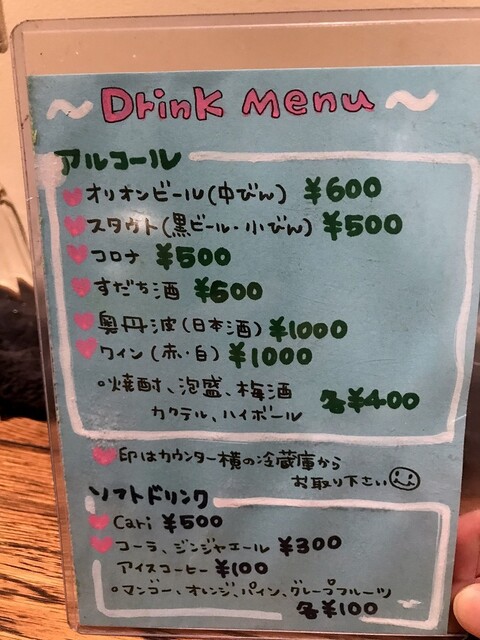 ～Drink Menu～
アルコール
オリオンビール(中びん) ¥600
スタウト(黒ビール・小びん) ¥500
コロナ ¥500
すだち酒 ¥600
奥丹波(日本酒) ¥1000
ワイン(赤・白) ¥1000
○焼酎、泡盛、梅酒
カクテル、ハイボール 各¥400
♥印はカウンター横の冷蔵庫から
お取り下さい☺
ソフトドリンク
Cari ¥500
コーラ、ジンジャエール ¥300
アイスコーヒー ¥100
○マンゴー、オレンジ、パイン、グレープフルーツ
各¥100